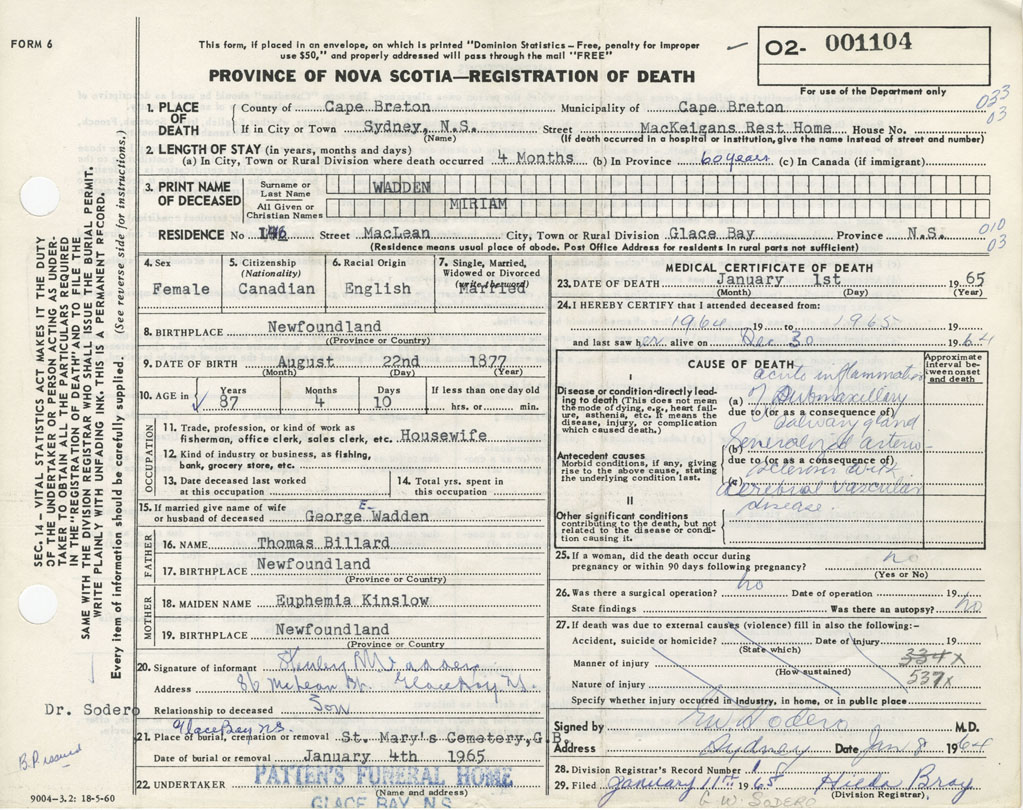 FORM 6
This form, if placed in an envelope, on which is printed "Dominion Statistics – Free, penalty for improper
use $50," and properly addressed will pass through the mail "FREE"
02- 001104
For use of the Department only
PROVINCE OF NOVA SCOTIA—REGISTRATION OF DEATH
033
03
1. PLACE OF DEATH
County of Cape Breton Municipality of Cape Breton
If in City or Town Sydney, N.S. Street MacKeigans Rest Home House No.
(Name) (If death occurred in a hospital or institution, give the name instead of street and number)
2. LENGTH OF STAY (in years, months and days)
(a) In City, Town or Rural Division where death occurred 4 Months (b) In Province 60 years (c) In Canada (if immigrant)
3. PRINT NAME OF DECEASED
Surname or Last Name WADDEN
All Given or Christian Names MIRIAM
RESIDENCE No 146 Street MacLean City, Town or Rural Division Glace Bay Province N.S.
010
03
(Residence means usual place of abode. Post Office Address for residents in rural parts not sufficient)
4. Sex
Female
5. Citizenship (Nationality)
Canadian
6. Racial Origin
English
7. Single, Married, Widowed or Divorced (write the word)
Married
8. BIRTHPLACE Newfoundland
((Province or Country)
9. DATE OF BIRTH August 22nd 1877
(Month) (Day) (Year)
10. AGE in Years Months Days If less than one day old
87 4 10 hrs. or min.
OCCUPATION
11. Trade, profession, or kind of work as
fisherman, office clerk, sales clerk, etc. Housewife
12. Kind of industry or business, as fishing,
bank, grocery store, etc.
13. Date deceased last worked
at this occupation
14. Total yrs. spent in
this occupation
15. If married give name of wife
or husband of deceased George E Wadden
FATHER
16. NAME Thomas Billard
17. BIRTHPLACE Newfoundland
(Province or Country)
MOTHER
18. MAIDEN NAME Euphemia Kinslow
19. BIRTHPLACE Newfoundland
(Province or Country
20. Signature of informant Wadden
Address 86 McLean St. Glace Bay N.S.
Relationship to deceased Son
Glace Bay N.S.
21. Place of burial, cremation or removal St. Mary's Cemetery, G.B.
Date of burial or removal January 4th 1965
22. UNDERTAKER PATTEN'S FUNERAL HOME
(Name and address)
GLACE BAY, N.S.
MEDICAL CERTIFICATE OF DEATH
23. DATE OF DEATH January 1st 19 65
(Month) (Day) (Year)
24. I HEREBY CERTIFY that I attended deceased from:
1964 19 to 1965 19
and last saw her alive on Dec 30 19 64
CAUSE OF DEATH
Approximate interval between onset and death
I
Disease or condition directly leading to death (This does not mean the mode of dying, e.g., heart failure, asthenia, etc. It means the disease, injury, or complication which caused death.)
acute inflammation
(a) of Submaxillary
due to (or as a consequence of)
salivary gland
Antecedent causes
Morbid conditions, if any, giving rise to the above cause, stating the underlying condition last.
Generalized arterio-
(b)
due to (or as a consequence of)
sclerosis with
(c)
cerebral vascular
disease.
II
Other significant conditions
contributing to the death, but not related to the disease or condition causing it.
25. If a woman, did the death occur during
pregnancy or within 90 days following pregnancy? no
(Yes or No)
26. Was there a surgical operation? no Date of operation 19
State findings Was there an autopsy? no
27. If death was due to external causes (violence) fill in also the following:-
Accident, suicide or homicide? Date of injury 19
(State which)
Manner of injury 334X
(How sustained)
Nature of injury 537X
Specify whether injury occurred in industry, in home, or in public place
Signed by G W Sodero M.D.
Address Sydney Date Jan 8 1964
28. Division Registrar's Record Number 1
29. Filed January 11th 19 65 Hilda Bray
(Division Registrar).
G W SODERO
SEC. 14 – VITAL STATISTICS ACT MAKES IT THE DUTY
OF THE UNDERTAKER OR PERSON ACTING AS UNDER-
TAKER TO OBTAIN ALL THE PARTICULARS REQUIRED
IN THE "REGISTRATION OF DEATH" AND TO FILE THE
SAME WITH THE DIVISION REGISTRAR WHO SHALL ISSUE THE BURIAL PERMIT.
WRITE PLAINLY WITH UNFADING INK. THIS IS A PERMANENT RECORD.
Every item of information should be carefully supplied. (See reverse side for instructions.)
Dr. Sodero
B.P. issued
9004-3.2: 18-5-60